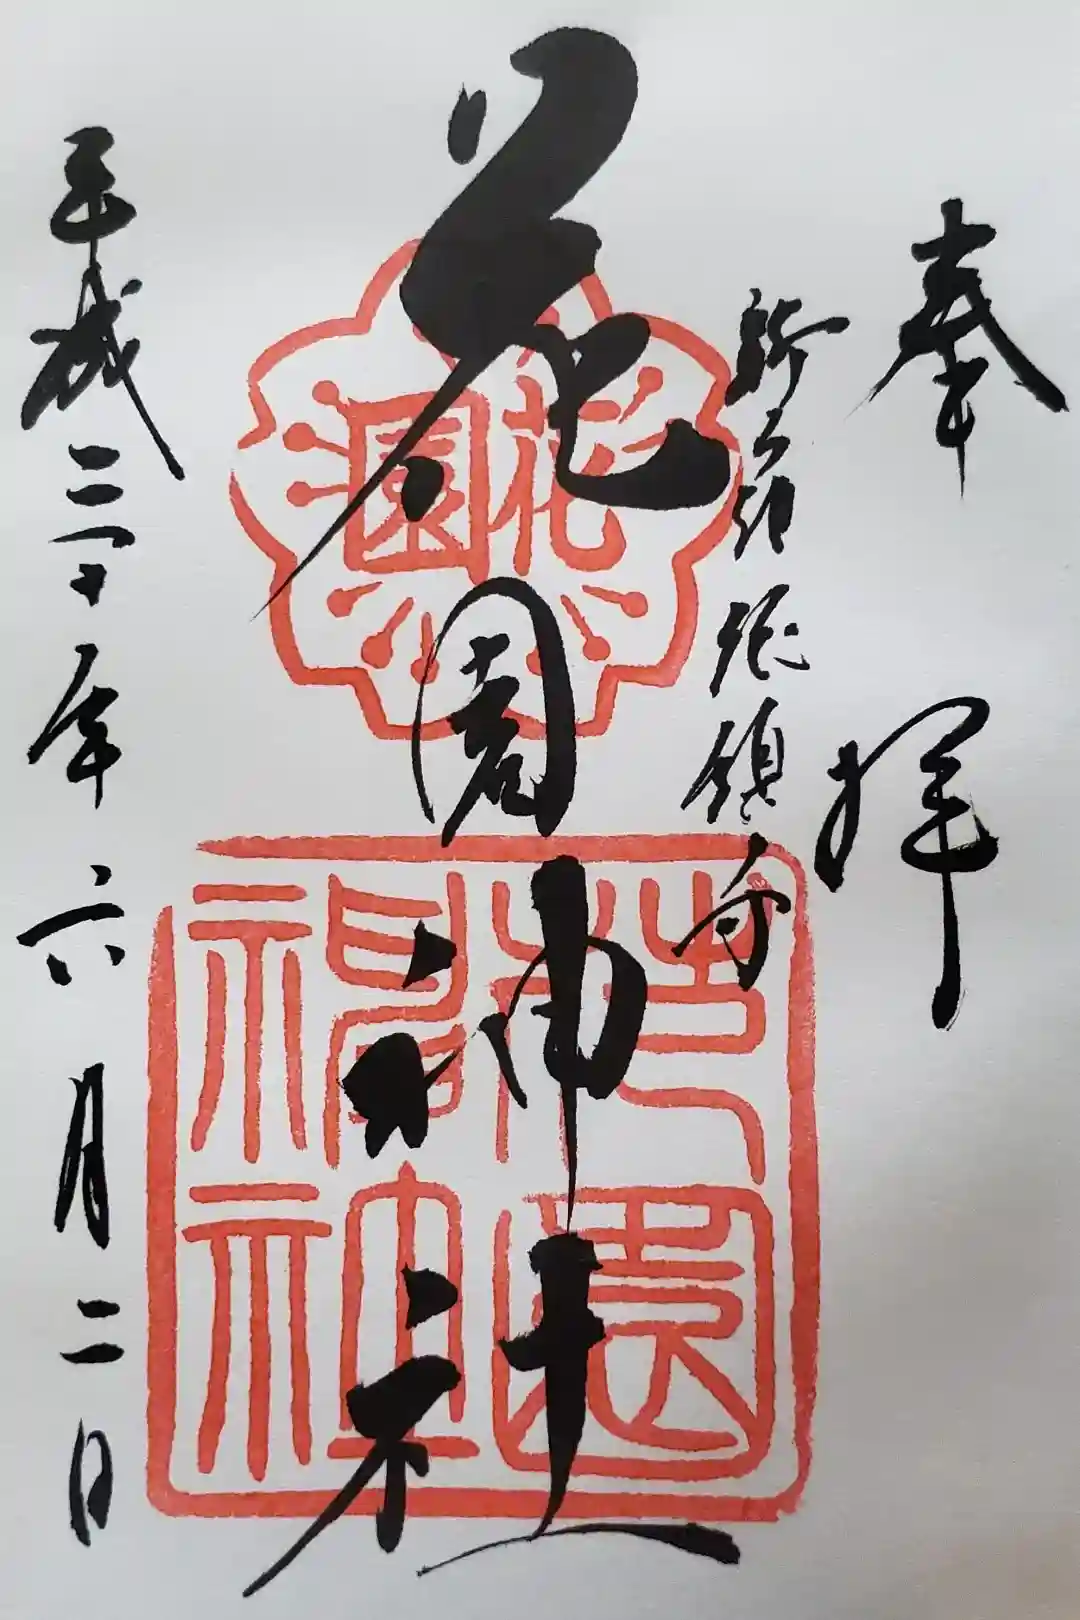 奉拝
新宿総鎮守
花園神社
平成三十年六月二日
花園
花園神社